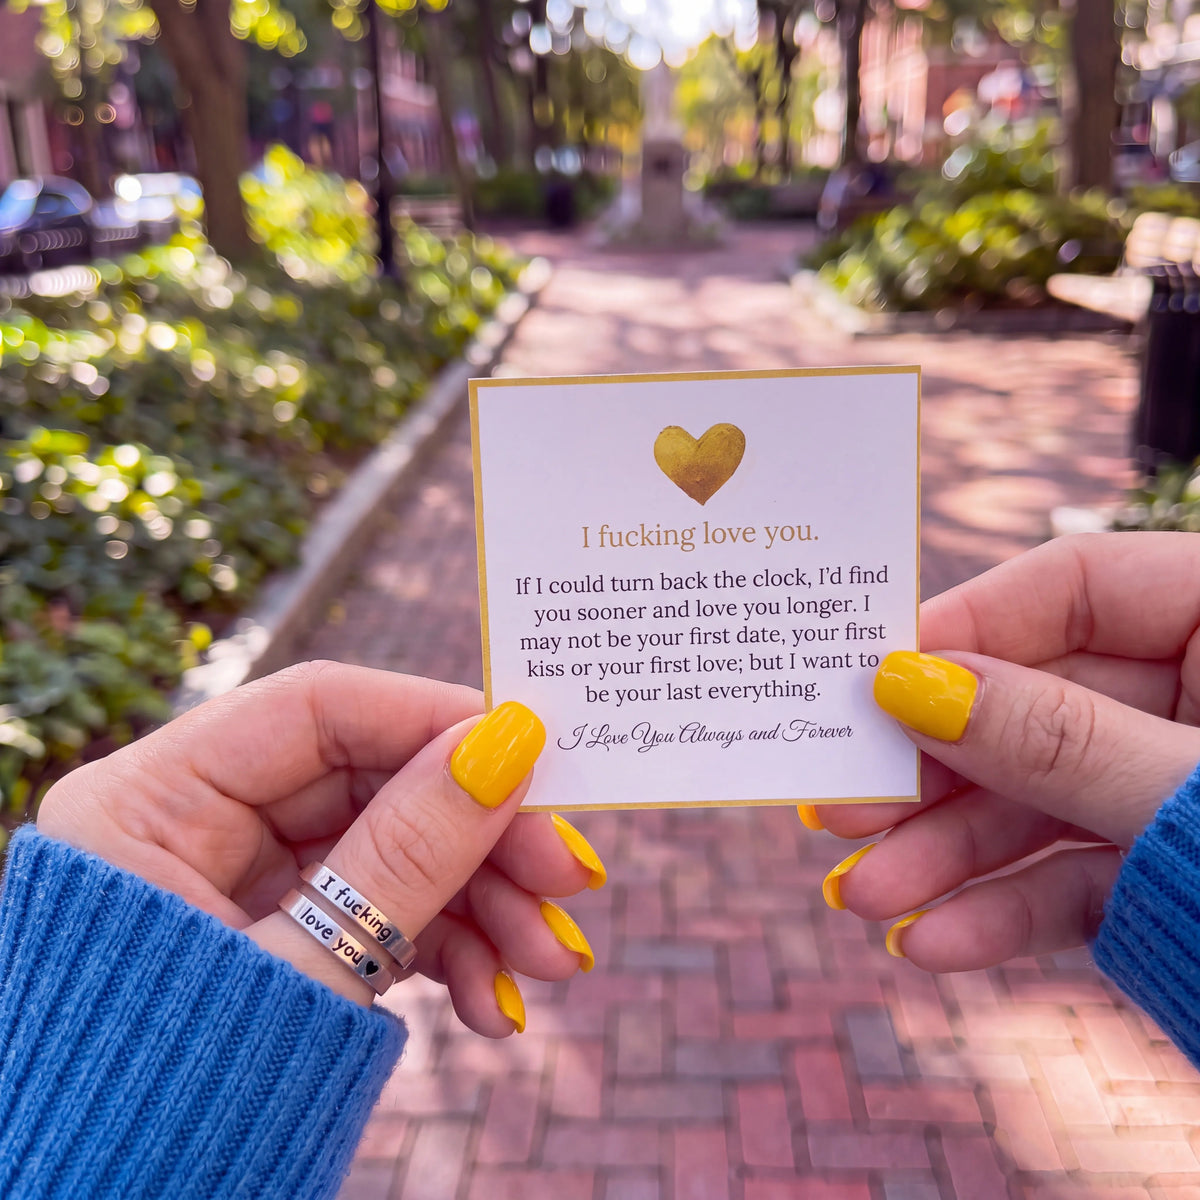 I fucking love you.
If I could turn back the clock, I'd find
you sooner and love you longer. I
may not be your first date, your first
kiss or your first love; but I want to
be your last everything.
I Love You Always and Forever
I fucking
love you♥